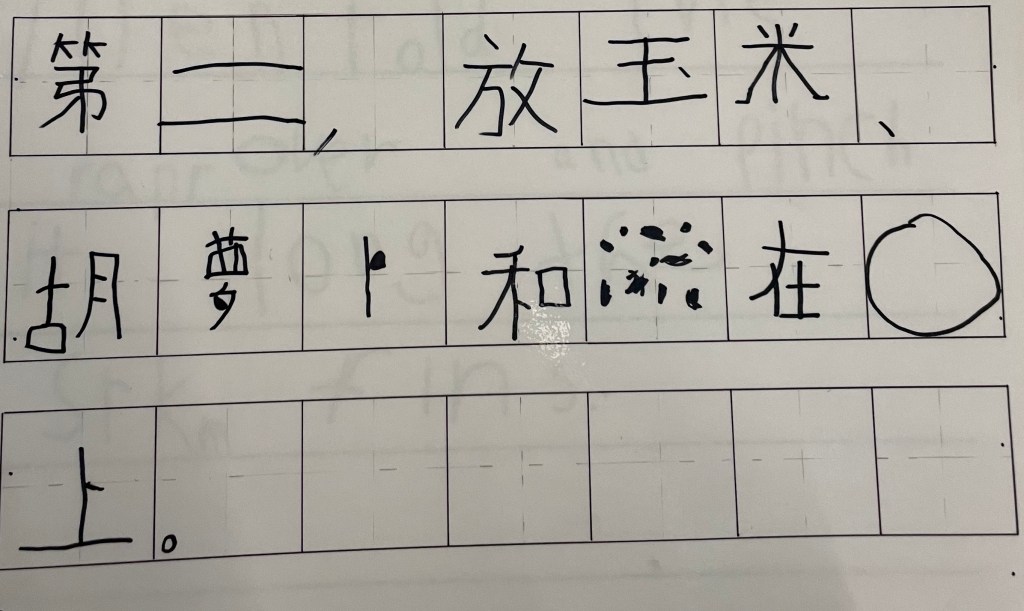 第二，放玉米、
胡萝卜和在
上。